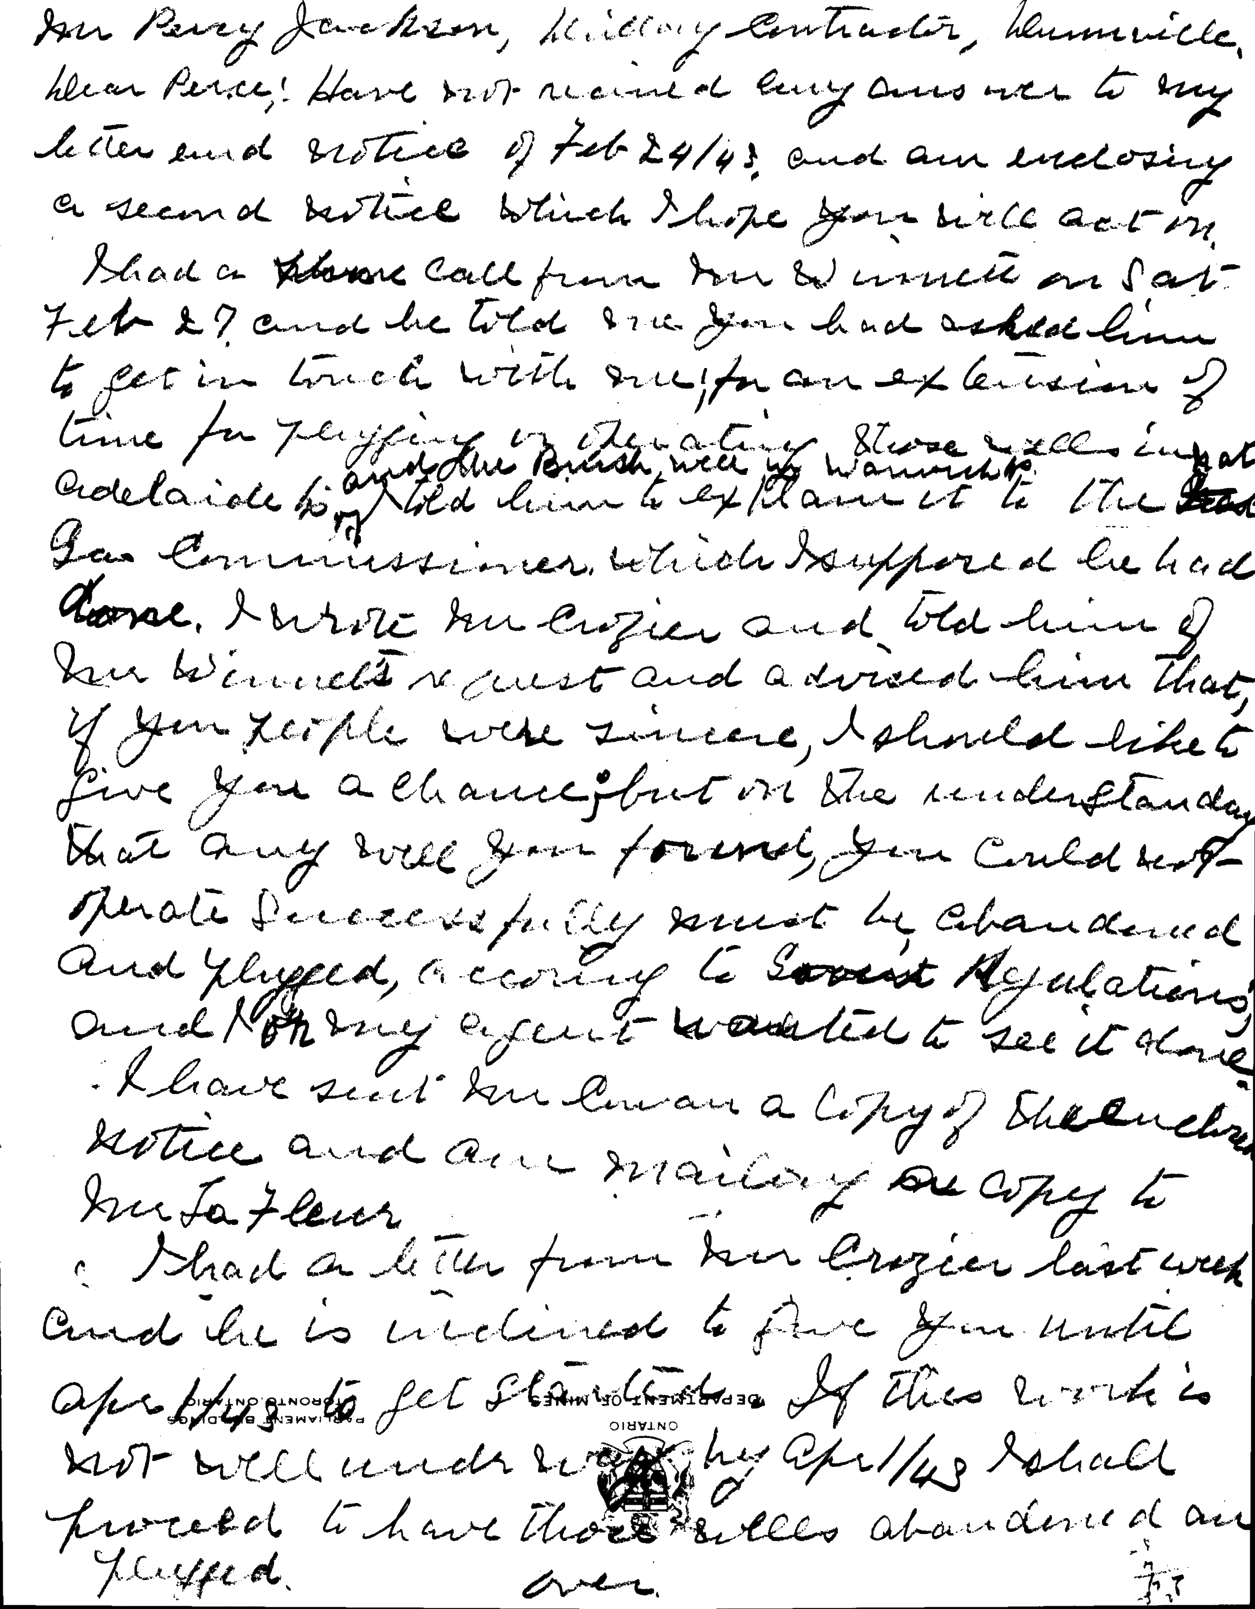 Mr Percy Jackson, Drilling Contractor, Dunnville.
Dear Perce; Have not recieved any answer to my
letter and notice of Feb 24/43, and am enclosing
a second notice which I hope you will act on.
I had a phone call from Mr Winnett on Sat
Feb 27 and he told me you had asked him
to get in touch with me, for an extension of
time for plugging or operating those wells in
and the Brush well in Warwick
Adelaide Tp, I told him to explain it to the Nat
Gas Commissioner, which I supposed he had
done. I wrote Mr Crozier and told him of
Mr Winnett's request and advised him that,
if you people were sincere, I should like to
give you a chance; but on the understanding
that any well you found, you could not
operate successfully must be abandoned
and plugged, accoring to Regulations,
and I or my agent wanted to see it done.
I have sent Mr Cowan a copy of the enclosed
notice and am mailing a copy to
Mr La Fleur
I had a letter from Mr Crozier last week
and he is inclined to give you until
Apr 1/43 to get started. If this work is
PARLIAMENT BUILDINGS
TORONTO, ONTARIO
DEPARTMENT OF MINES
ONTARIO
not well under way by Apr 1/43 I shall
proceed to have those wells abandoned an
plugged.
over.